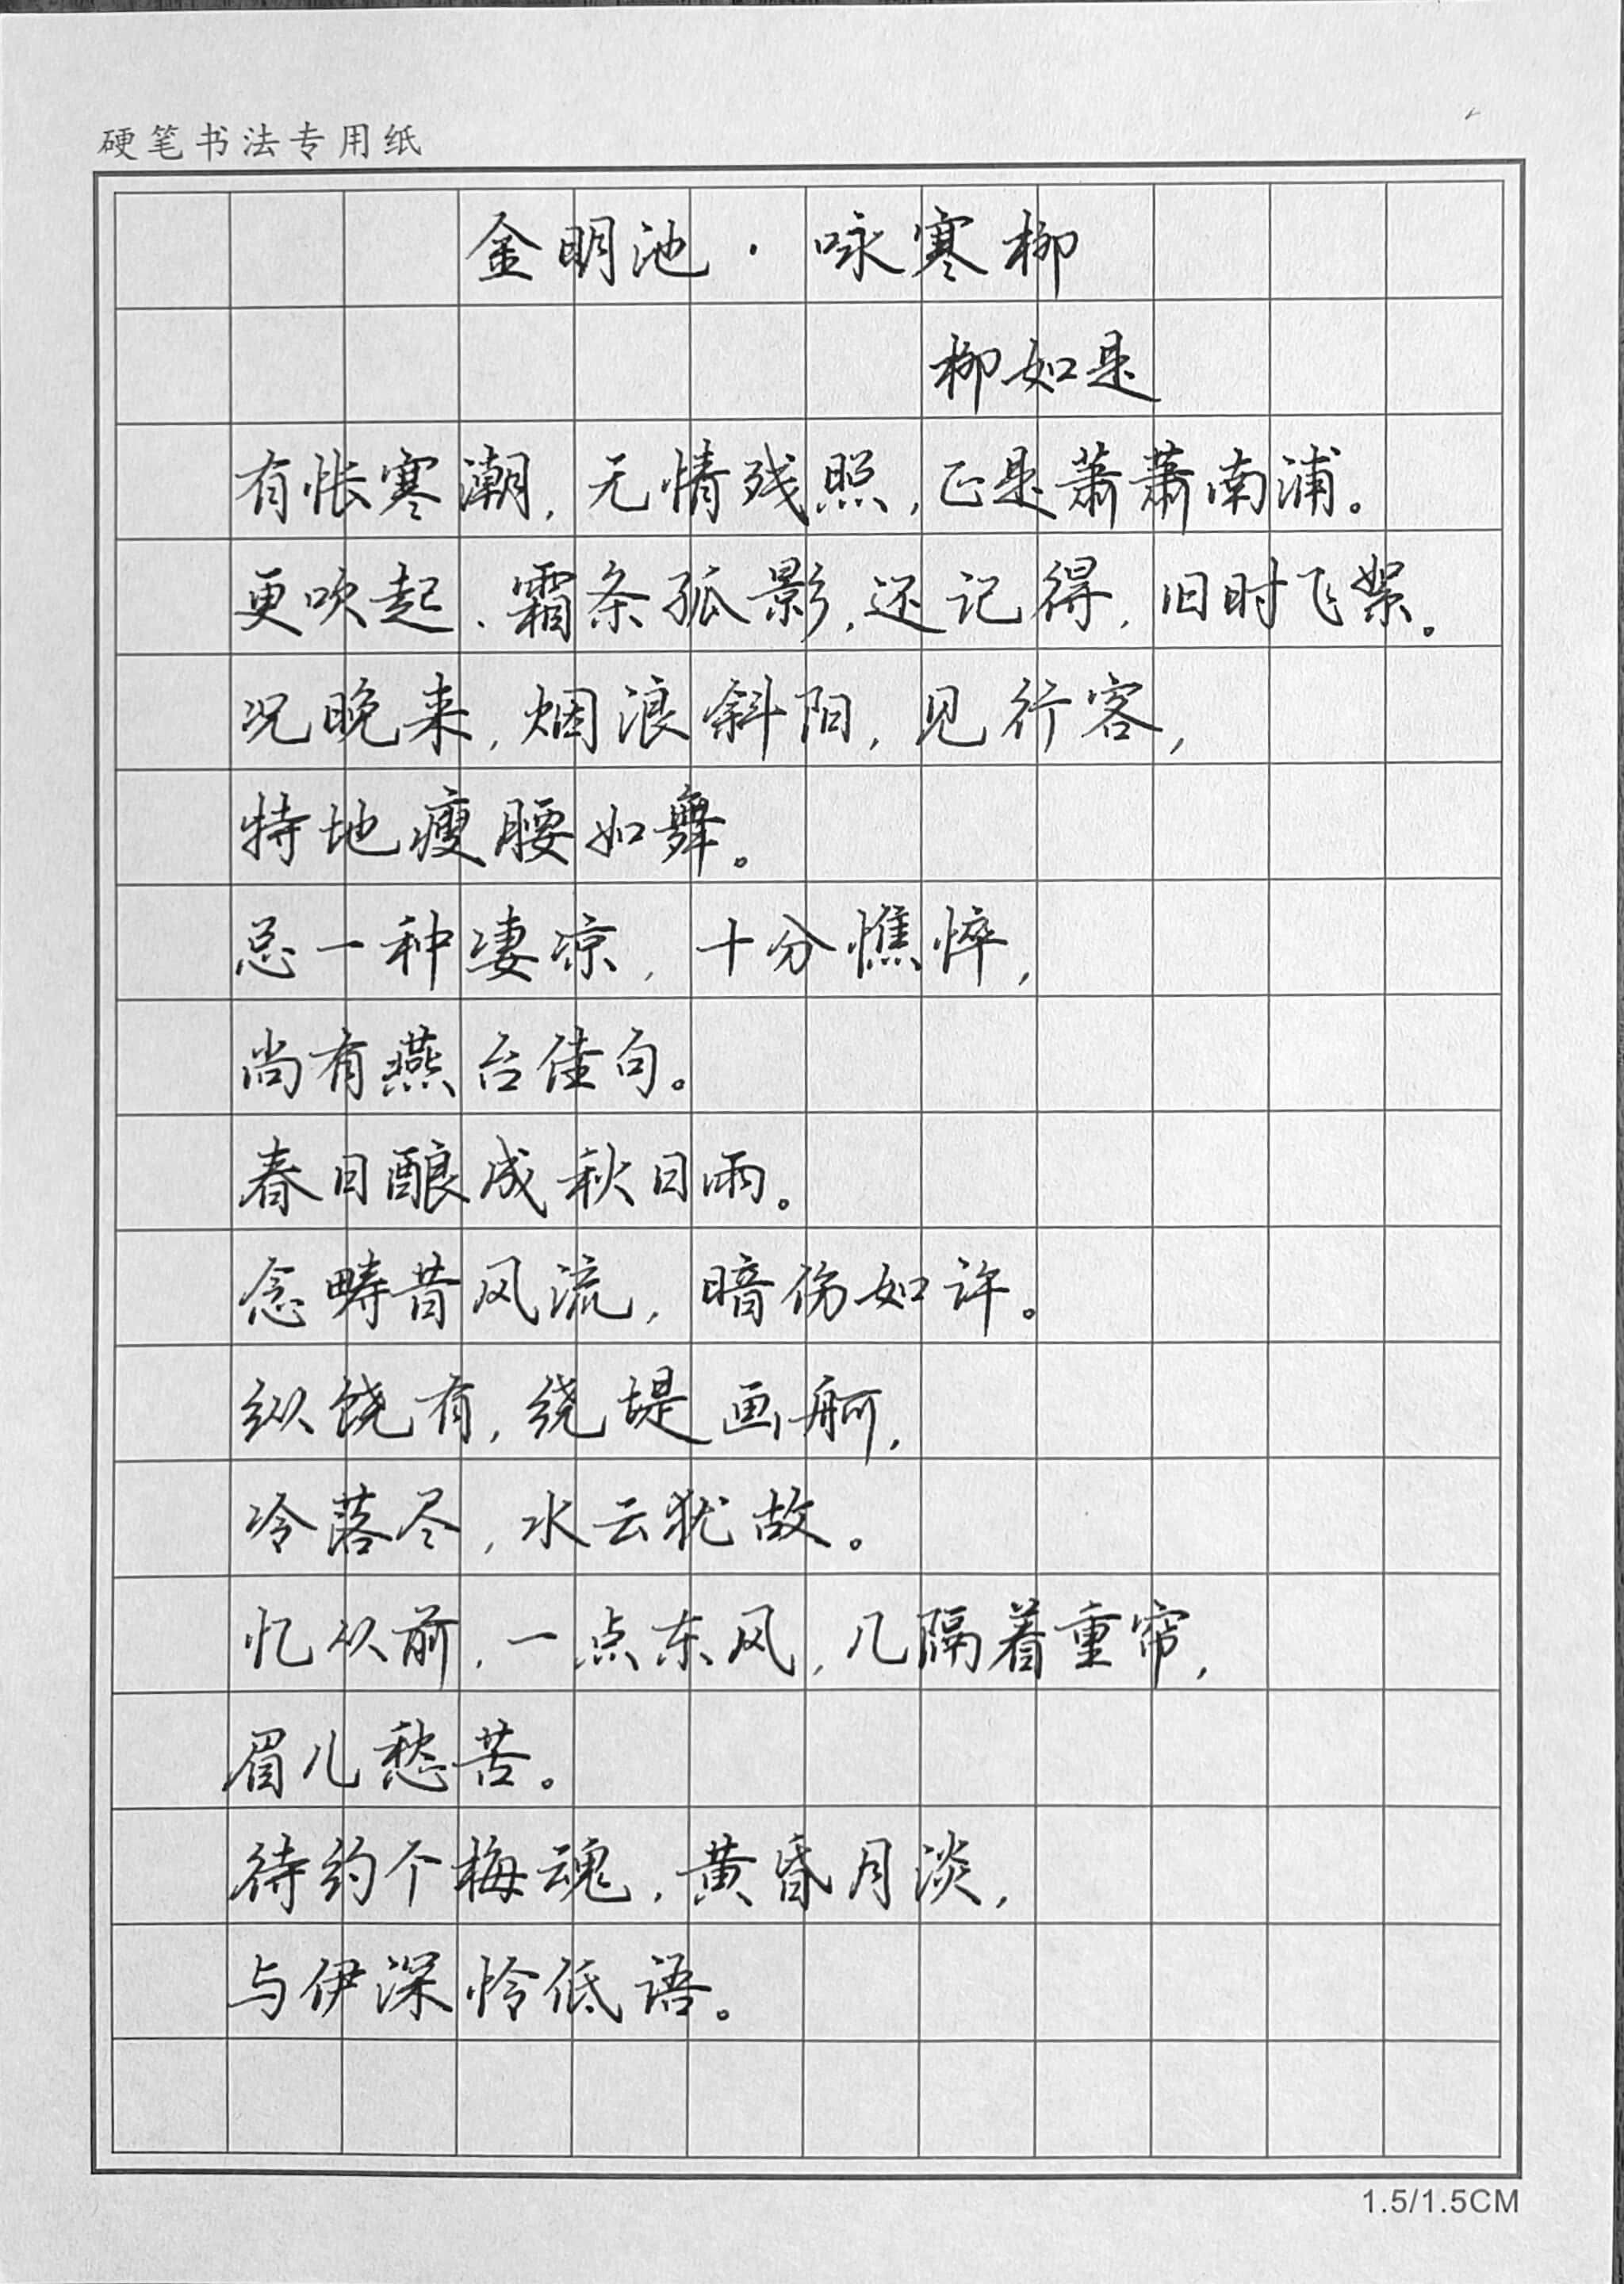 硬笔书法专用纸
金明池·咏寒柳
柳如是
有怅寒潮,无情残照,正是萧萧南浦。
更吹起、霜条孤影,还记得,旧时飞絮。
况晚来,烟浪斜阳,见行客,
特地瘦腰如舞。
总一种凄凉,十分憔悴,
尚有燕台佳句。
春日酿成秋日雨。
念畴昔风流,暗伤如许。
纵饶有,绕堤画舸,
冷落尽,水云犹故。
忆从前,一点东风,几隔着重帘,
眉儿愁苦。
待约个梅魂,黄昏月淡,
与伊深怜低语。
1.5/1.5CM